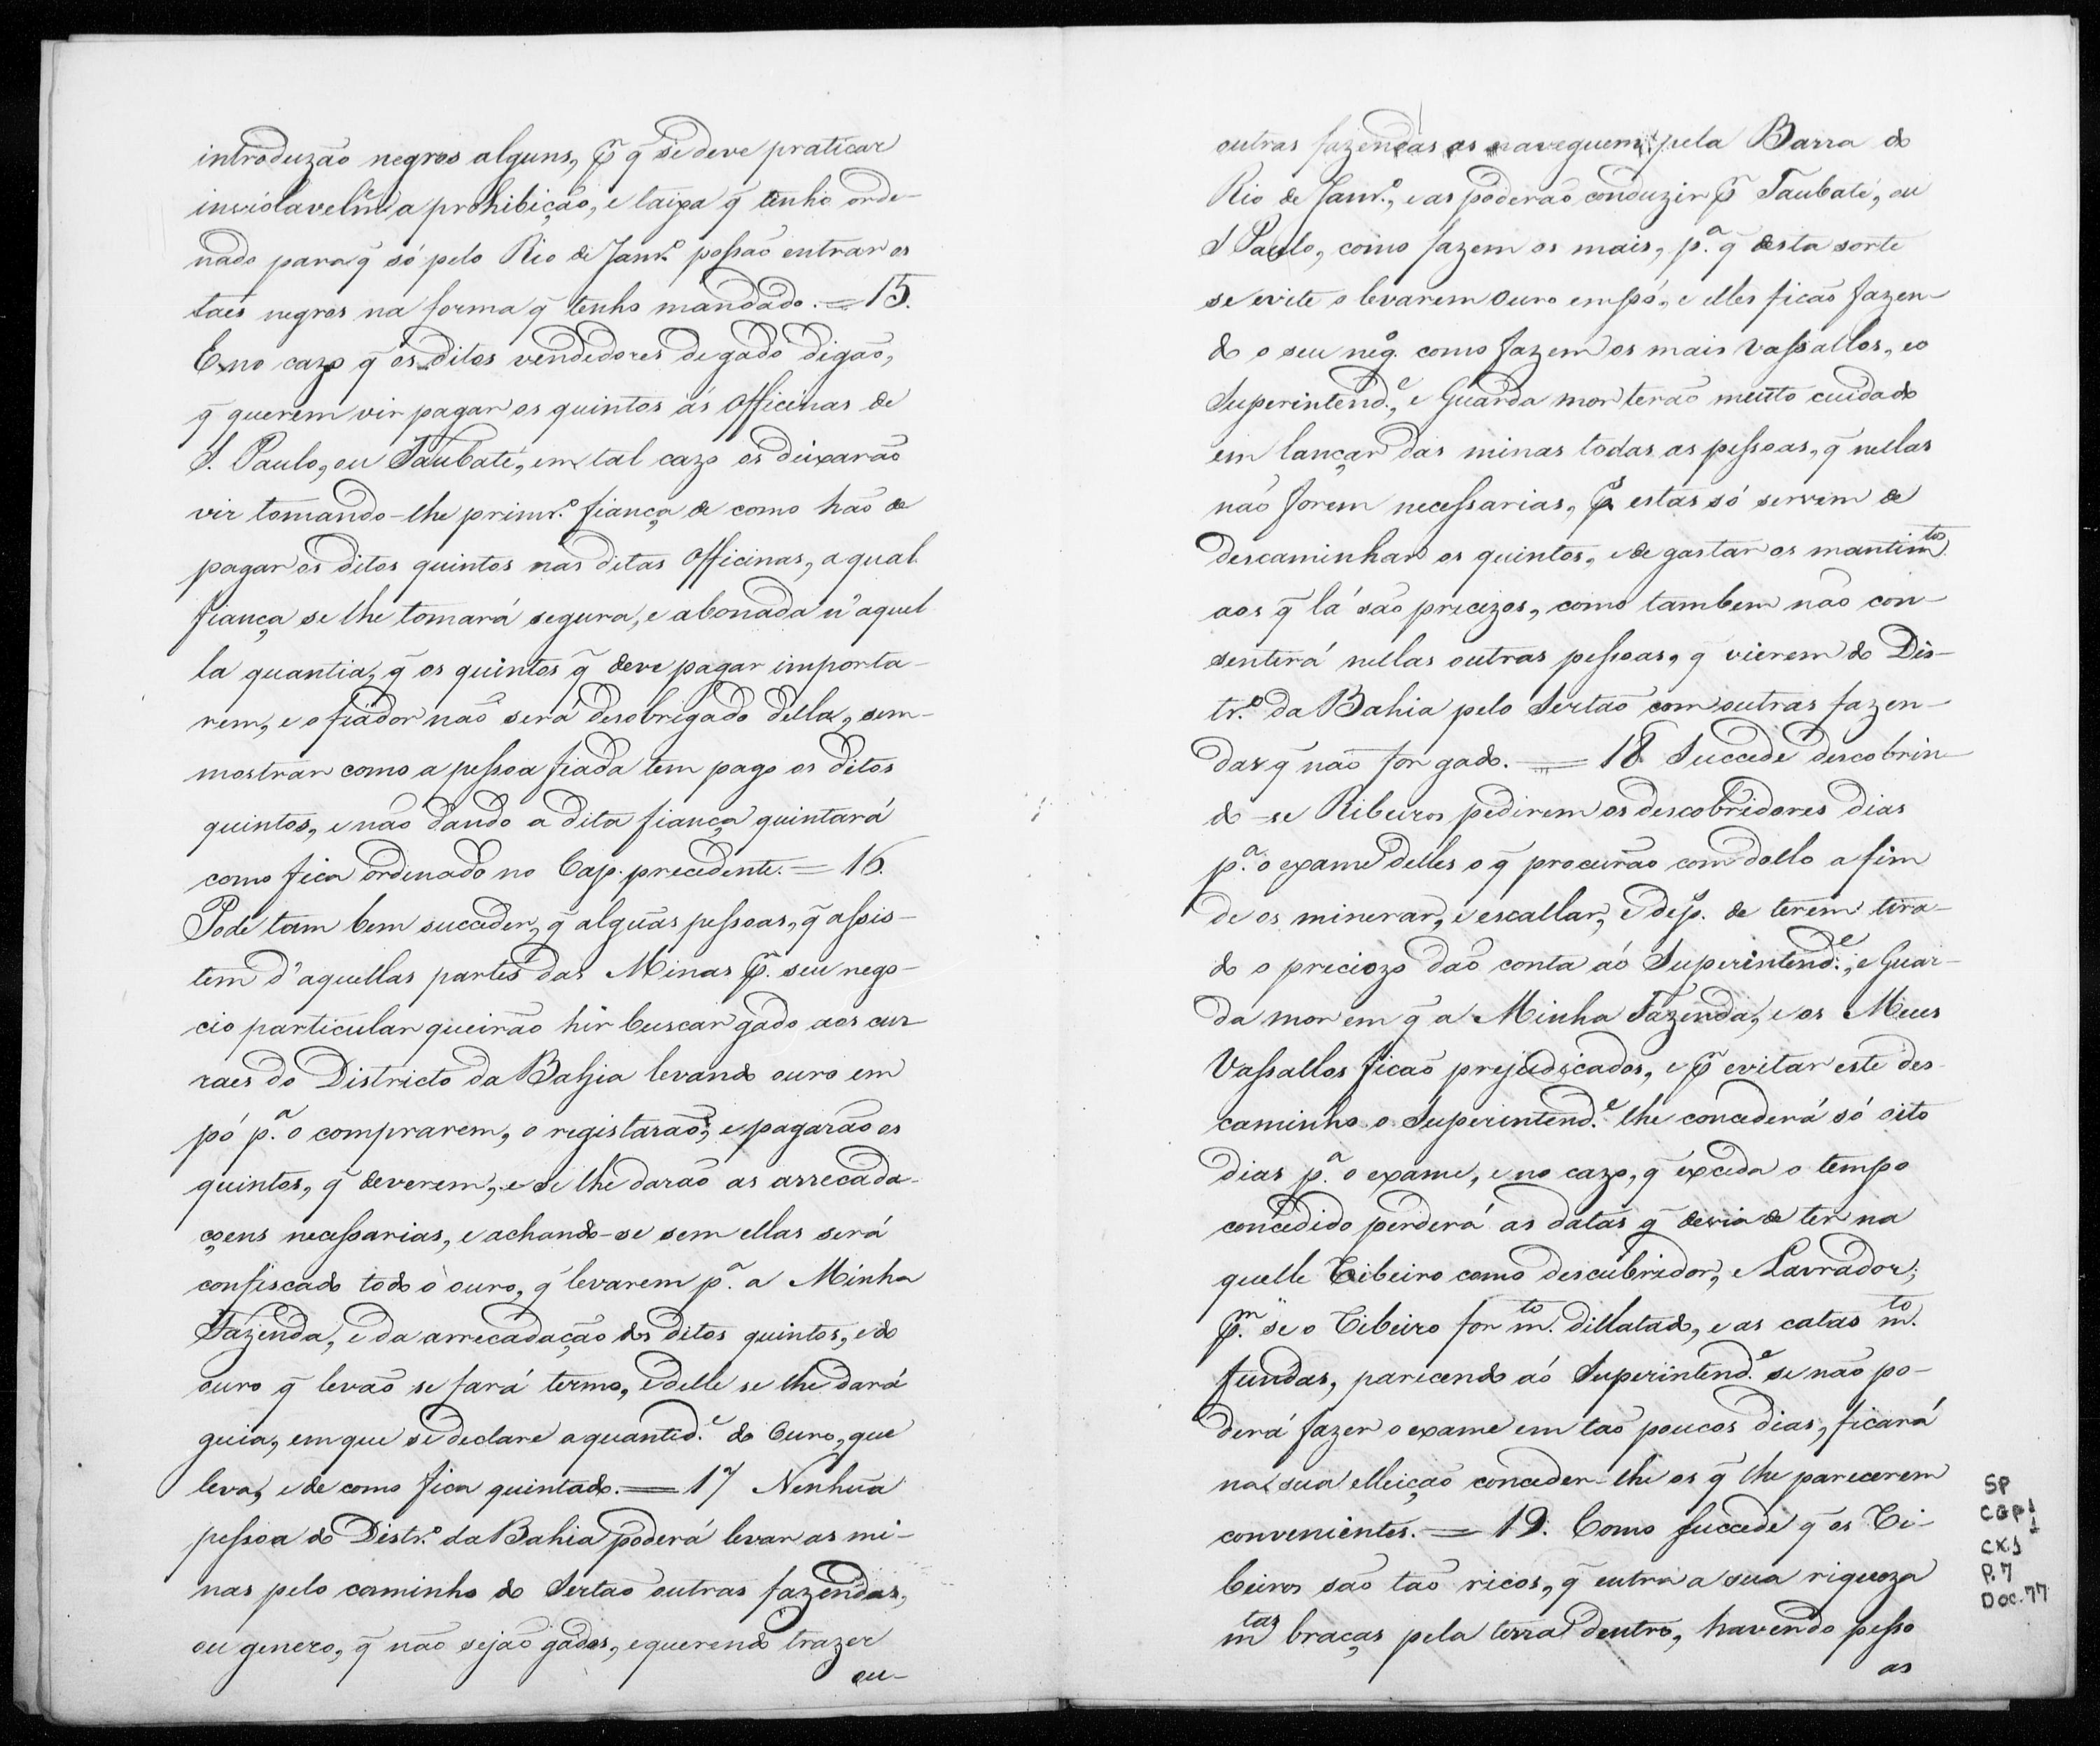 introduzão negros alguns, p̃ q̃ se deve praticar
inviolavelm.te a prohibição, e taixa q̃ tenho orde-
nado para q̃ só pelo Rio de Janr.º possão entrar os
taes negros na forma q̃ tenho mandado. = 15.
E no cazo q̃ os ditos vendedores de gado digão,
q̃ querem vir pagar os quintos ás Officinas de
S. Paulo, ou Taubaté, em tal cazo os deixarão
vir tomando-lhe primr.º fiança de como hão de
pagar os ditos quintos nas ditas Officinas, a qual
fiança se lhe tomará segura, e abonada n'aquel
la quantia, q̃ os quintos q̃ deve pagar importa-
rem, e o fiador não será desobrigado della, sem
mostrar como a pessoa fiada tem pago os ditos
quintos, e não dando a dita fiança quintará
como fica ordenado no Cap. precedente. = 16.
Pode tam bem succeder, q̃ alguãs pessoas, q̃ assis-
tem d'aquellas partes das Minas p̃. seu nego-
cio particular queirão hir buscar gado aos cur
raes do Districto da Bahia levando ouro em
pó p.ª o comprarem, o registarão, e pagarão os
quintos, q̃ deverem, e se lhe darão as arrecada-
çoens necessarias, e achando-se sem ellas será
confiscado todo o ouro, q̃ levarem p.ª a Minha
Fazenda, e da arrecadação dos ditos quintos, e do
ouro q̃ levão se fará termo, e delle se lhe dará
guia, em que se declare a quantid.e do Ouro, que
leva, e de como fica quintado. = 17 Nenhũa
pessoa do Distr.º da Bahia poderá levar as mi-
nas pelo caminho do Sertão outras fazendas,
ou genero, q̃ não sejão gados, e querendo trazer
ou-
outras fazendas as naveguem pela Barra do
Rio de Janr.º, e as poderão conduzir p̃ Taubaté, ou
S Paulo, como fazem os mais, p.ª q̃ desta sorte
se evite o levarem ouro em pó, e elles ficão fazen-
do o seu neg.º como fazem os mais Vassallos, e o
Superintend.e, e Guarda mor terão muito cuidado
em lançar das minas todas as pessoas, q̃ nellas
não forem necessarias, p̃ estas só servem de
descaminhar os quintos, e de gastar os mantim.tos
aos q̃ lá são precizos, como tambem não con-
sentirá nellas outras pessoas, q̃ vierem do Dis-
tr.º da Bahia pelo Sertão com outras fazen-
das q̃ não for gado. = 18 Succede descobrin-
do-se Ribeiros pedirem os descobridores dias
p.ª o exame delles o q̃ procurão com dollo a fim
de os minerar, e escallar, e dep.s de terem tira-
do o preciozo dão conta aó Superintend.e, e Guar-
da mor em q̃ a Minha Fazenda, e os Meus
Vassallos ficão prejudicados, e p̃ evitar este des-
caminho o Superintend.e lhe concederá só oito
dias p.ª o exame, e no cazo, q̃ exceda o tempo
concedido perderá as datas q̃ devia de ter na
quelle Ribeiro como descubridor, e Lavrador;
p̃.m se o Ribeiro for m.to dillatado, e as catas m.to
fundas, parecendo aó Superintend.e se não po-
derá fazer o exame em tão poucos dias, ficará
na sua elleição conceder-lhe os q̃ lhe parecerem
convenientes. = 19. Como succede q̃ os Ri-
beiros são tão ricos, q̃ entra a sua riqueza
m.tas braças pela terra dentro, havendo pesso
as
SP
CGP1
1
CX.1
P.7
Doc.77